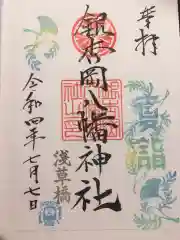 奉拝
銀杏岡八幡神社
浅草橋
令和四年七月七日